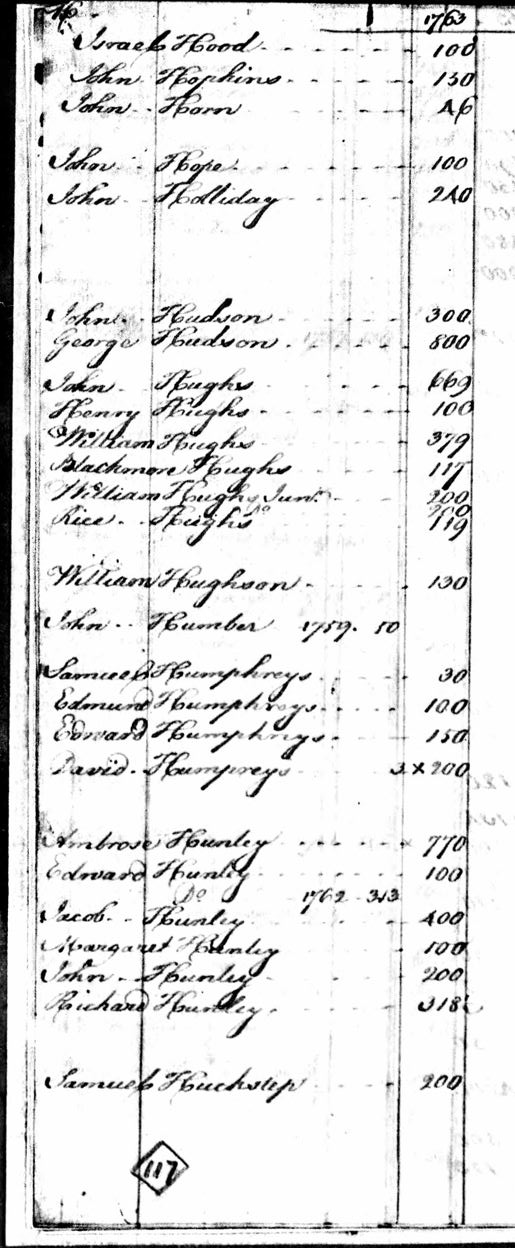 1763
Israel Hood 100
John Hopkins 130
John Horn 46
John Hope 100
John Holliday 240
John Hudson 300
George Hudson 800
John Hughs 669
Henry Hughs 100
William Hughs 379
Blackmore Hughs 117
William Hughs Junr 200
Do 260
Rice Hughs 119
William Hughson 130
John Humber 1759. 50
Samuel Humphreys 30
Edmund Humphreys 100
Edward Humphreys 150
David Humpreys 3 x 200
Ambrose Hunley 770
Edward Hunley 100
Do 1762 313
Jacob Hunley 400
Margaret Hunley 100
John Hunley 200
Richard Hunley 318
Samuel Huckstep 200
117